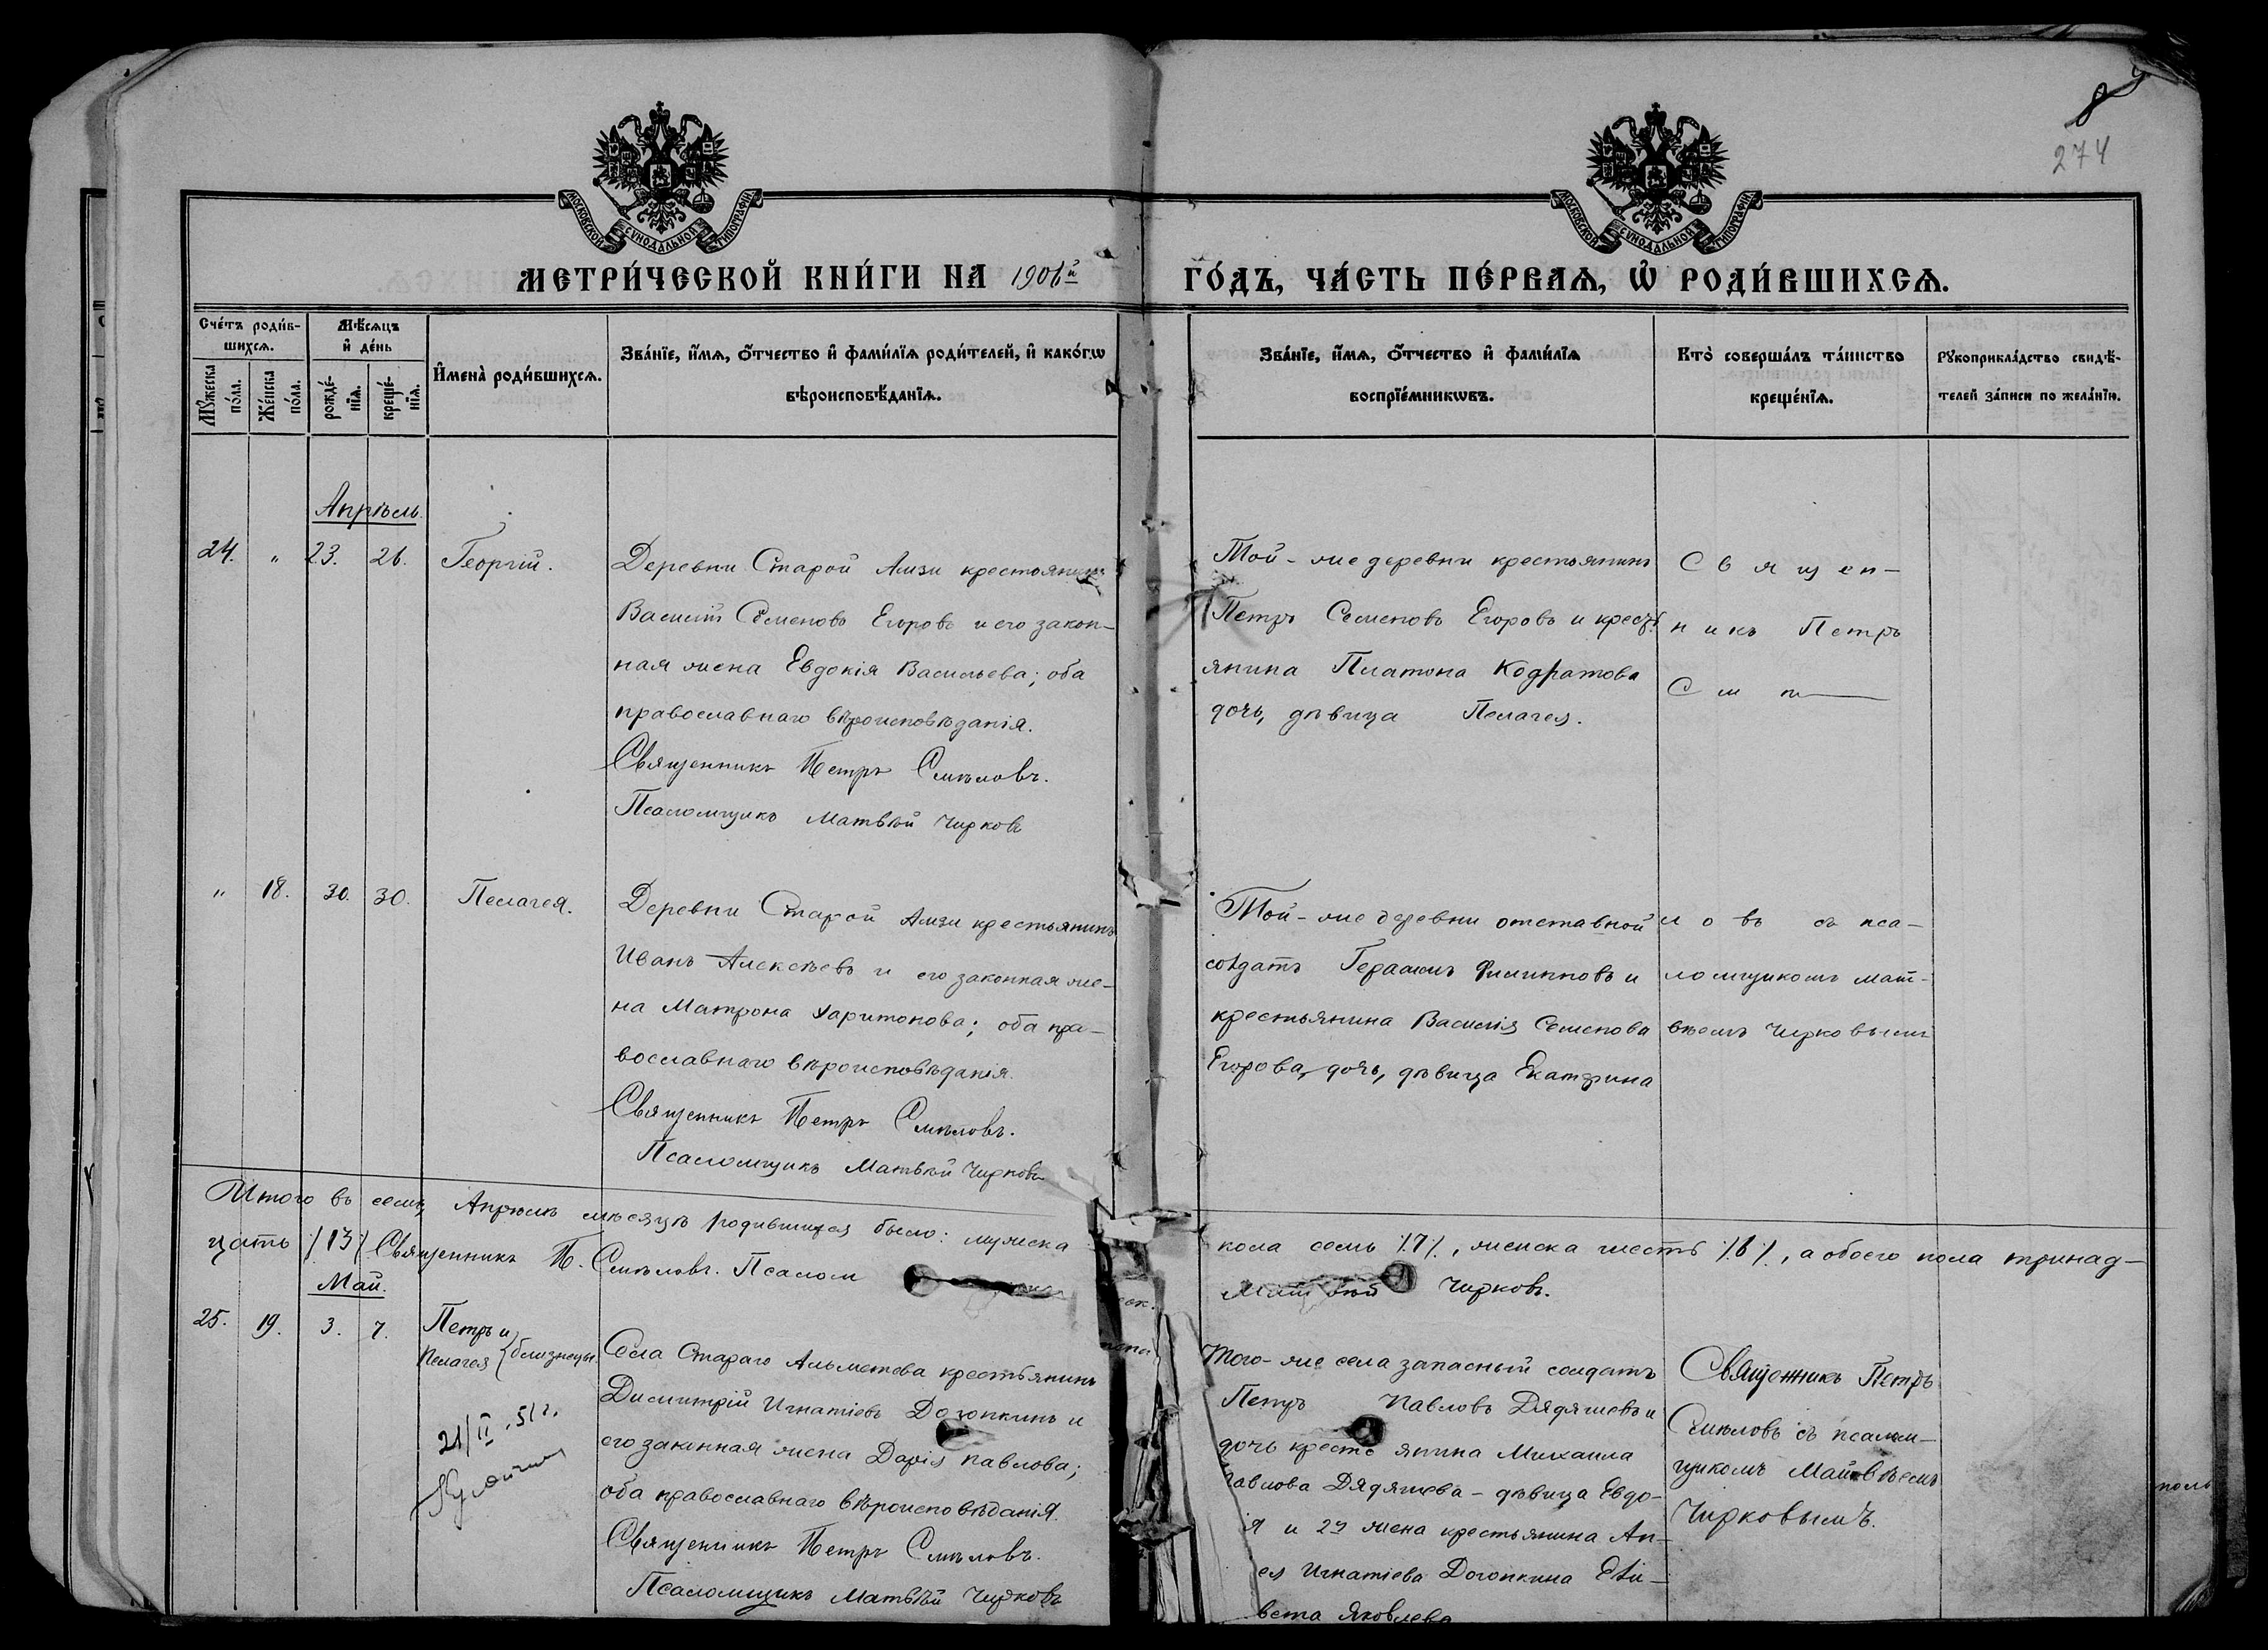 89
274
МОСКОВСКОЙ СѴНОДАЛЬНОЙ ТИПОГРАФІИ
МОСКОВСКОЙ СѴНОДАЛЬНОЙ ТИПОГРАФІИ
МЕТРИ́ЧЕСКОЙ КНИ́ГИ НА 1906й ГО́ДЪ, ЧА́СТЬ ПЕ́РВАѦ, Ѡ҆ РОДИ́ВШИХСѦ.
Сче́тъ роди́в-
шихсѧ.
Мꙋ́жеска по́ла.
Же́нска по́ла.
Мѣ́сѧцъ
и҆ де́нь
рожде́-
нїѧ.
креще́-
нїѧ.
И҆мена̀ роди́вшихсѧ.
Зва́нїе, и҆́мѧ, ѻ҆́тчество и҆ фами́лїѧ роди́телей, и҆ како́гѡ
вѣроисповѣ́данїѧ.
Зва́нїе, и҆́мѧ, ѻ҆́тчество и҆ фами́лїѧ
воспрїе́мникѡвъ.
Кто̀ соверша́лъ та́инство
креще́нїѧ.
Рꙋкоприкла́дство свидѣ́-
телей за́писи по жела́нїю.
Апрѣль.
24. " 23. 26. Георгій.
Деревни Старой Амзи крестьянинъ
Василій Семеновъ Егоровъ и его закон-
ная жена Евдокія Васильева; оба
православнаго вѣроисповѣданія.
Священникъ Петръ Смѣловъ.
Псаломщикъ Матвѣй Чирковъ
Той-же деревни крестьянинъ
Петръ Семеновъ Егоровъ и кресть
янина Платона Кодратова
дочь, дѣвица Пелагея.
Священ-
никъ Петръ
См
" 18. 30. 30. Пелагея.
Деревни Старой Амзи крестьянинъ
Иванъ Алексѣевъ и его законная же-
на Матрона Харитонова; оба пра-
вославнаго вѣроисповѣданія.
Священникъ Петръ Смѣловъ.
Псаломщикъ Матвѣй Чирковъ
Той-же деревни отставной
солдатъ Герасимъ Филипповъ и
крестьянина Василія Семенова
Егорова, дочь, дѣвица Екатерина
ловъ съ пса-
ломщикомъ Мат-
вѣемъ Чирковымъ
Итого въ семъ Апрѣлѣ мѣсяцѣ родившихся было: мужеска
пола семь /7/, женска шесть /6/, а обоего пола тринад-
цать /13/ Священникъ П. Смѣловъ. Псалом
Матвѣй Чирковъ.
Май.
25. 19. 3. 7. Петръ и
Пелагея близнецы.
21/II.51г.
Села Стараго Альметева крестьянинъ
Димитрій Игнатіевъ Догопкинъ и
его законная жена Дарія Павлова;
оба православнаго вѣроисповѣданія.
Священникъ Петръ Смѣловъ.
Псаломщикъ Матвѣй Чирковъ
Того-же села запасный солдатъ
Петръ Павловъ Дядяшевъ и
дочь крестьянина Михаила
Павлова Дядяшева - дѣвица Евдо-
я и 2я жена крестьянина Ан-
ея Игнатіева Догопкина Ели-
вета Яковлева
Священникъ Петръ
Смѣловъ съ псалом-
щикомъ Матвѣемъ
Чирковымъ.